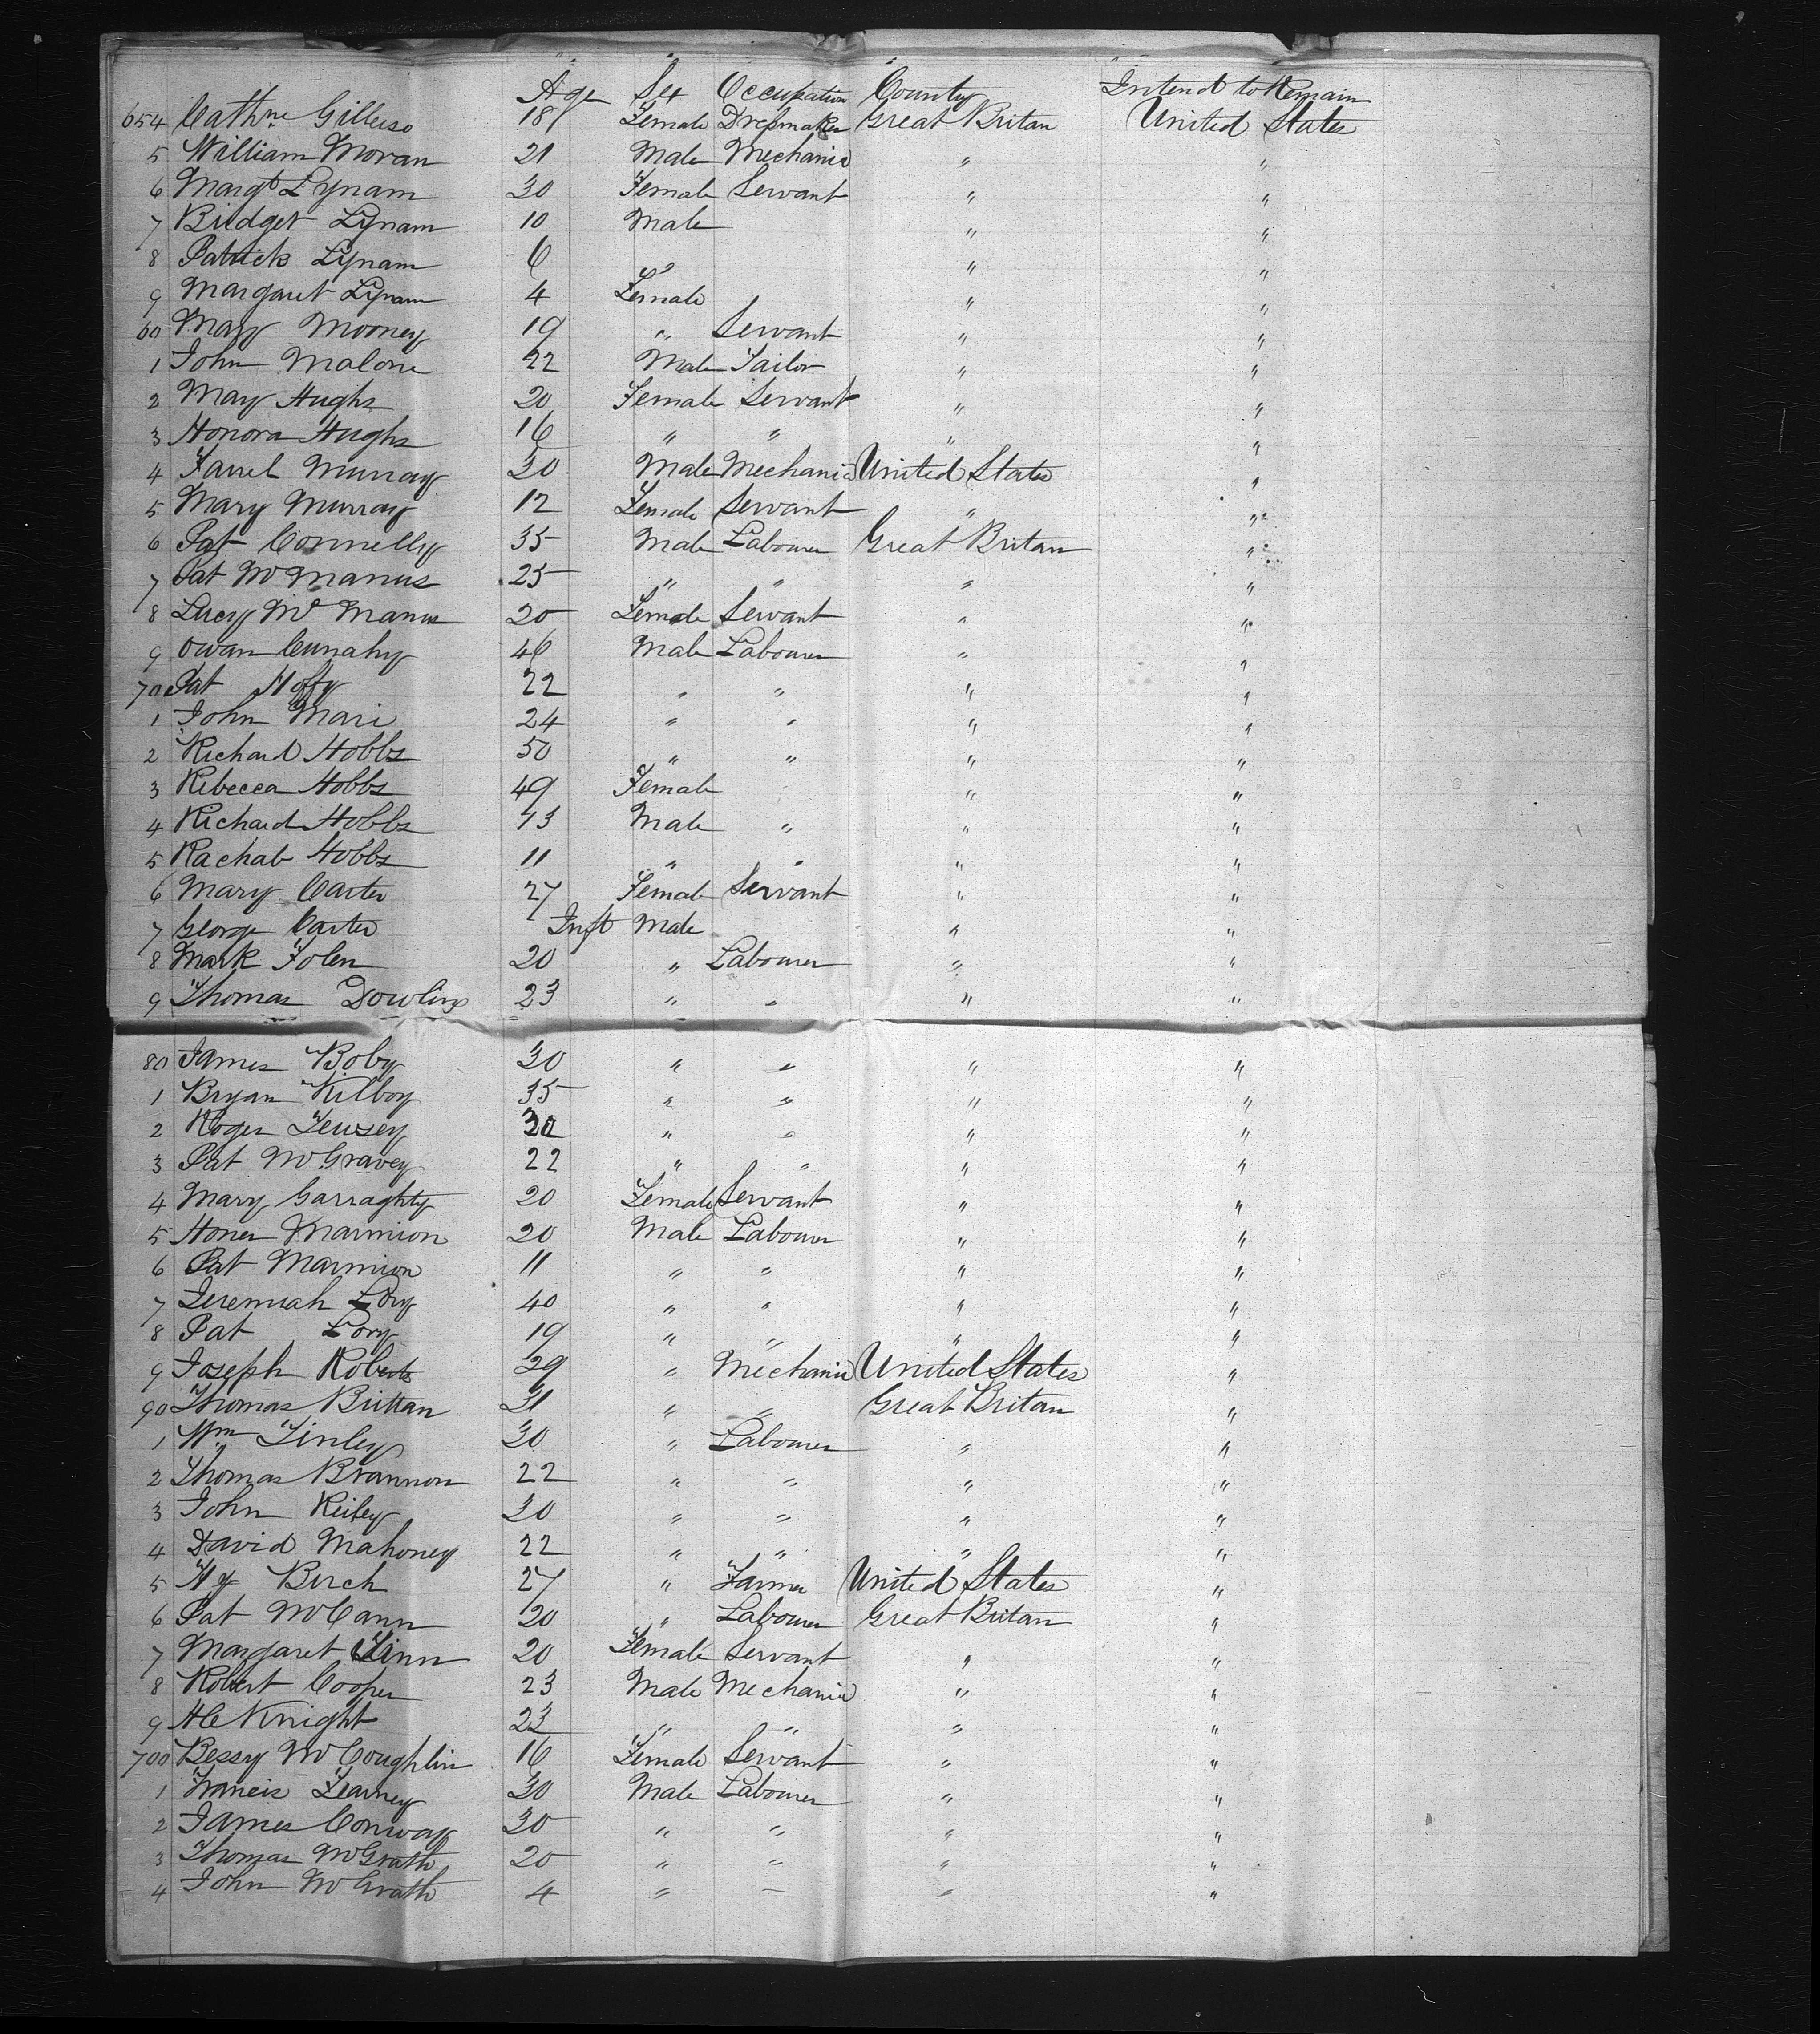 Age Sex Occupation County Intend to Remain
654 Cathne 18 Female Dressmaker Great Britan United States
5 William Moran 21 Male Mechanic " "
6 Margt Lynam 30 Female Servant " "
7 Bridget Lynam 10 Male " "
8 Patrick Lynam 6 " " "
9 Margaret Lynam 4 Female " "
60 Mary Mooney 19 " Servant " "
1 John Malone 22 Male Tailor " "
2 May Hughs 20 Female Servant " "
3 Honora Hughs 16 " " " "
4 Farrel Murray 30 Male Mechanic United States "
5 Mary Murray 12 Female Servant " "
6 Pat Connelly 35 Male Labourer Great Britan "
7 Pat McManus 25 " " " "
8 Lucy McManus 20 Female Servant " "
9 Owan Cunahy 46 Male Labourer " "
70 Pat 22 " " " "
1 John Mari 24 " " " "
2 Richard Hobbs 50 " " " "
3 Rebecca Hobbs 49 Female " "
4 Richard Hobbs 13 Male " " "
5 Rachab Hobbs 11 " " " "
6 Mary Carter 27 Female Servant " "
7 George Carter Inft Male " "
8 Mark Folen 20 " Labourer " "
9 Thomas Dowling 23 " " " "
80 James Boby 30 " " " "
1 Bryan Kilboy 35 " " " "
2 Roger " " " "
3 Pat McGravey 22 " " " "
4 Mary Garraghty 20 Female Servant " "
5 Honer Marmion 20 Male Labourer " "
6 Pat Marmion 11 " " " "
7 Jeremiah Lory 40 " " " "
8 Pat Lory 19 " " " "
9 Joseph Roberts 29 " Mechanic United States "
90 Thomas Brittan 31 " " Great Britan "
1 Wm Finley 30 " Labourer " "
2 Thomas Brannon 22 " " " "
3 John Reiley 30 " " " "
4 David Mahoney 22 " " " "
5 Hy Birch 27 " Farmer United States "
6 Pat McCann 20 " Labourer Great Britan "
7 Margaret Finn 20 Female Servant " "
8 Robert Cooper 23 Male Mechanic " "
9 Knight 23 " " " "
700 Bessy McCoughlin 16 Female Servant " "
1 Francis Fearney 30 Male Labourer " "
2 James Conway 30 " " " "
3 Thomas McGrath 20 " " " "
4 John McGrath 4 " – " "